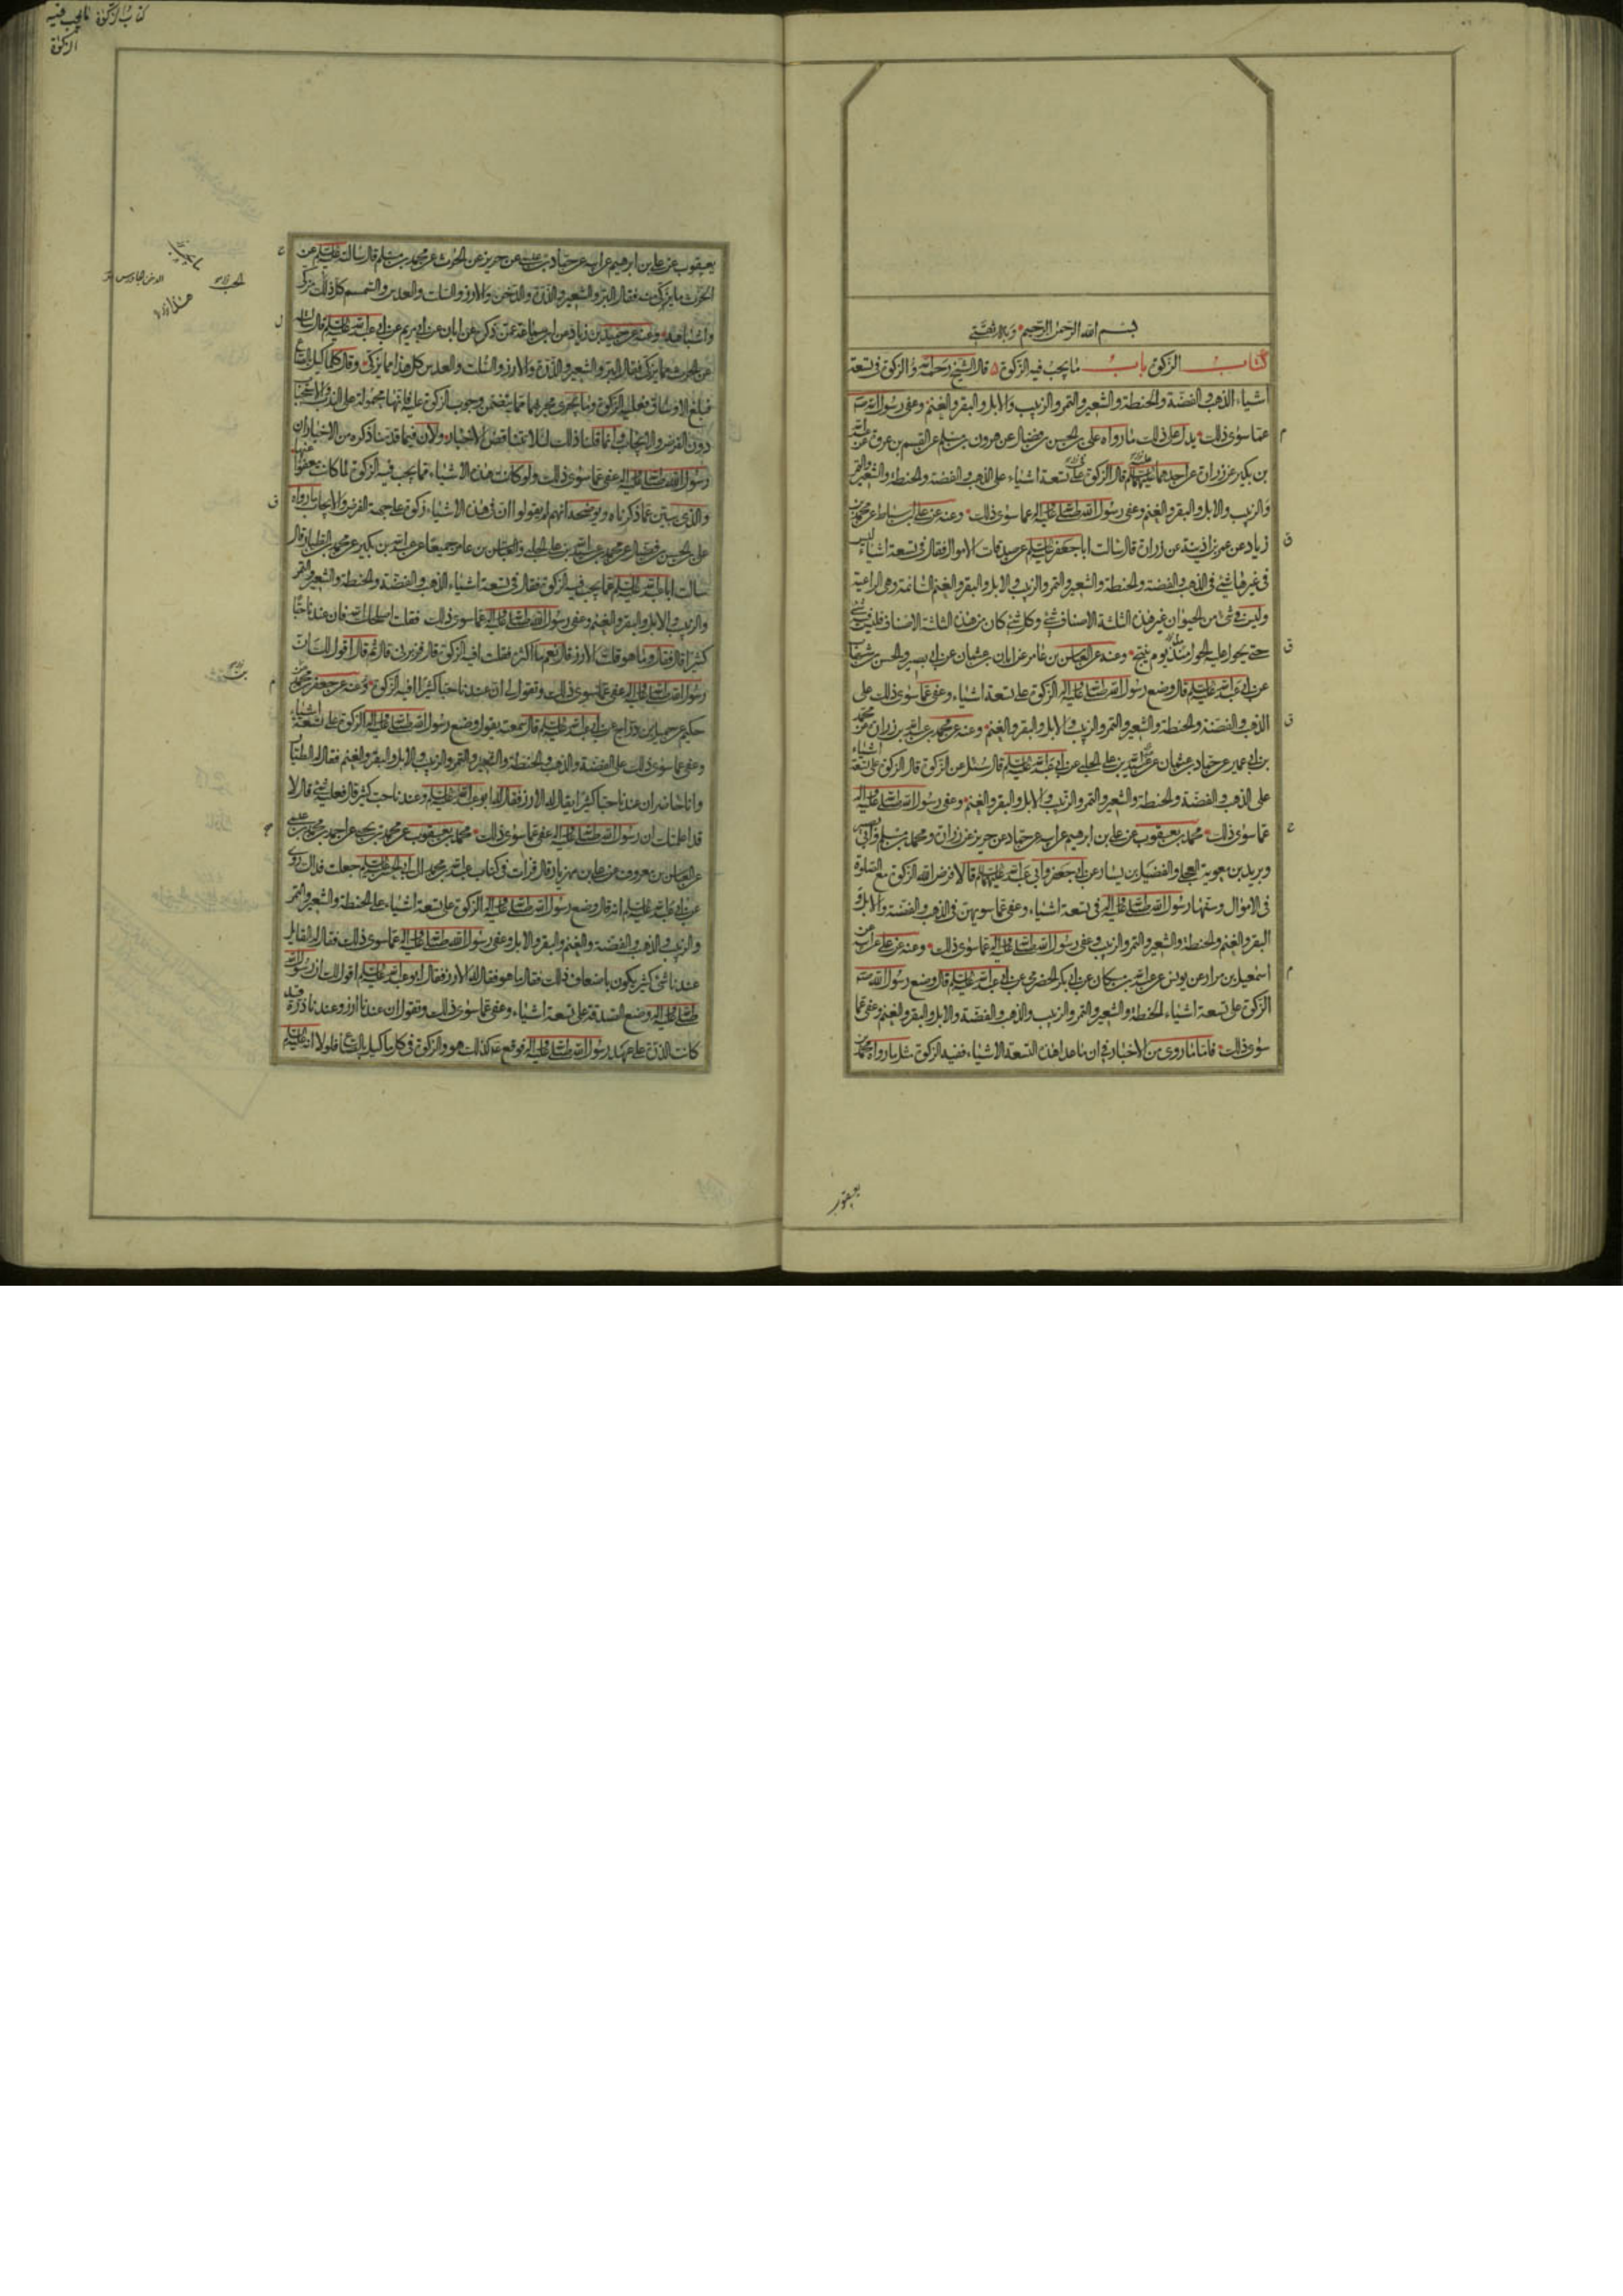 بسم الله الرحمن الرحیم وبه ثقتی
کتاب الزکوة باب ما یجب فیه الزکوة قال الشیخ رحمه الله والزکوة فی تسعة
اشیاء الذهب والفضة والحنطة والشعیر والتمر والزبیب والابل والبقر والغنم وعفی رسول الله ص
عما سوی ذلک یدل علی ذلک ما رواه علی بن الحسن بن فضال عن هرون بن مسلم عن القسم بن عروة عن عبدالله
بن بکیر عن زرارة عن احدهما علیهما السلم قال الزکوة علی تسعة اشیاء علی الذهب والفضة والحنطة والشعیر والتمر
والزبیب والابل والبقر والغنم وعفی رسول الله صلی الله علیه واله عما سوی ذلک وعنه عن علی بن اسباط عن محمد بن
زیاد عن عمر بن اذینة عن زرارة قال سالت ابا جعفر علیه السلم عن صدقات الاموال فقال فی تسعة اشیاء لیس
فی غیرها شئ فی الذهب والفضة والحنطة والشعیر والتمر والزبیب والابل والبقر والغنم السائمة وهی الراعیة
ولیس فی شئ من الحیوان غیر هذه الثلثة الاصناف شئ وکل شئ کان من هذه الثلثة الاصناف فلیس فیه شئ
حتی یحول علیه الحول منذ یوم ینتج وعنه عن العباس بن عامر عن ابان بن عثمان عن ابی بصیر والحسن بن شهاب
عن ابی عبدالله علیه السلم قال وضع رسول الله صلی الله علیه واله الزکوة علی تسعة اشیاء وعفی عما سوی ذلک علی
الذهب والفضة والحنطة والشعیر والتمر والزبیب والابل والبقر والغنم وعنه عن محمد بن عبدالله بن زرارة عن محمد
بن ابی عمیر عن حماد بن عثمان عن عبیدالله بن علی الحلبی عن ابی عبدالله علیه السلم قال سئل عن الزکوة قال الزکوة علی تسعة اشیاء
علی الذهب والفضة والحنطة والشعیر والتمر والزبیب والابل والبقر والغنم وعفی رسول الله صلی الله علیه واله
عما سوی ذلک محمد بن یعقوب عن علی بن ابرهیم عن ابیه عن حماد عن حریز عن زرارة ومحمد بن مسلم وابی بصیر
وبرید بن معویة العجلی والفضیل بن یسار عن ابی جعفر وابی عبدالله علیهما السلم قالا فرض الله الزکوة مع الصلوة
فی الاموال وسنها رسول الله صلی الله علیه واله فی تسعة اشیاء وعفی عما سویهن فی الذهب والفضة والابل و
البقر والغنم والحنطة والشعیر والتمر والزبیب وعفی رسول الله صلی الله علیه واله عما سوی ذلک وعنه عن علی عن ابیه عن
اسمعیل بن مرار عن یونس عن عبدالله بن مسکان عن ابی بکر الحضرمی عن ابی عبدالله علیه السلم قال وضع رسول الله ص
الزکوة علی تسعة اشیاء الحنطة والشعیر والتمر والزبیب والذهب والفضة والابل والبقر والغنم وعفی عما
سوی ذلک فاما ما روی من الاخبار فی ان ما عدا هذه التسعة الاشیاء ففیه الزکوة مثل ما رواه محمد بن
یعقوب
کتاب الزکوة ما یجب فیه
الزکوة
یعقوب عن علی بن ابرهیم عن ابیه عن حماد بن عیسی عن حریز عن محمد بن مسلم قال سالته علیه السلم عن
الحرث ما یزکی منه فقال البر والشعیر والذرة والدخن والارز والسلت والعدس والسمسم کل ذلک یزکی
واشباهه وعنه عن حمید بن زیاد عن ابن سماعة عمن ذکره عن ابان عن ابی مریم عن ابی عبدالله علیه السلم قال سالته
عن الحرث مما یزکی فقال البر والشعیر والذرة والارز والسلت والعدس کل هذا مما یزکی وقال کلما کیل بالصاع
فبلغ الاوساق فعلیه الزکوة وما یجری مجریهما مما یتضمن وجوب الزکوة علیه فانها محمولة علی الندب والاستحباب
دون الفرض والایجاب وانما قلنا ذلک لئلا تتناقض الاخبار ولان فیما قدمنا ذکره من الاخبار ان
رسول الله صلی الله علیه واله عفی عما سوی ذلک ولو کانت هذه الاشیاء مما یجب فیه الزکوة لما کانت معفوا عنها
والذی یبین عما ذکرناه ویوضحه انهم لم یقولوا ان فی هذه الاشیاء زکوة علی جهة الفرض والایجاب ما رواه
علی بن الحسن بن فضال عن محمد بن عبیدالله بن علی الحلبی والعباس بن عامر جمیعا عن عبدالله بن بکیر عن محمد بن الطیار قال
سالت ابا عبدالله علیه السلم عما یجب فیه الزکوة فقال فی تسعة اشیاء الذهب والفضة والحنطة والشعیر والتمر
والزبیب والابل والبقر والغنم وعفی رسول الله صلی الله علیه واله عما سوی ذلک فقلت اصلحک الله فان عندنا حبا
کثیرا قال فقال وما هو قلت الارز قال نعم ما اکثره فقلت افیه الزکوة قال فزبرنی قال ثم قال اقول لک ان
رسول الله صلی الله علیه واله عفی عما سوی ذلک وتقول لی ان عندنا حبا کثیرا افیه الزکوة وعنه عن جعفر بن محمد بن
حکیم عن جمیل بن دراج عن ابی عبدالله علیه السلم قال سمعته یقول وضع رسول الله صلی الله علیه واله الزکوة علی تسعة اشیاء
وعفی عما سوی ذلک علی الفضة والذهب والحنطة والشعیر والتمر والزبیب والابل والبقر والغنم فقال له الطیار
وانا حاضر ان عندنا حبا کثیرا یقال له الارز فقال له ابو عبدالله علیه السلم وعندنا حب کثیر قال فعلیه شئ قال لا
قد اعلمتک ان رسول الله صلی الله علیه واله عفی عما سوی ذلک محمد بن یعقوب عن محمد بن یحیی عن احمد بن محمد بن عیسی
عن العباس بن معروف عن علی بن مهزیار قال قرات فی کتاب عبدالله بن محمد الی ابی الحسن علیه السلم جعلت فداک روی
عن ابی عبدالله علیه السلم انه قال وضع رسول الله صلی الله علیه واله الزکوة علی تسعة اشیاء علی الحنطة والشعیر والتمر
والزبیب والذهب والفضة والغنم والبقر والابل وعفی رسول الله صلی الله علیه واله عما سوی ذلک فقال له القایل
عندنا شئ کثیر یکون باضعاف ذلک فقال ما هو فقال له الارز فقال ابو عبدالله علیه السلم اقول لک ان رسول الله
صلی الله علیه واله وضع الصدقة علی تسعة اشیاء وعفی عما سوی ذلک وتقول ان عندنا ارز وعندنا ذرة وقد
کانت الذرة علی عهد رسول الله صلی الله علیه واله فوقع ع کذلک هو والزکوة فی کل ما کیل بالصاع فلولا انه علیه السلم